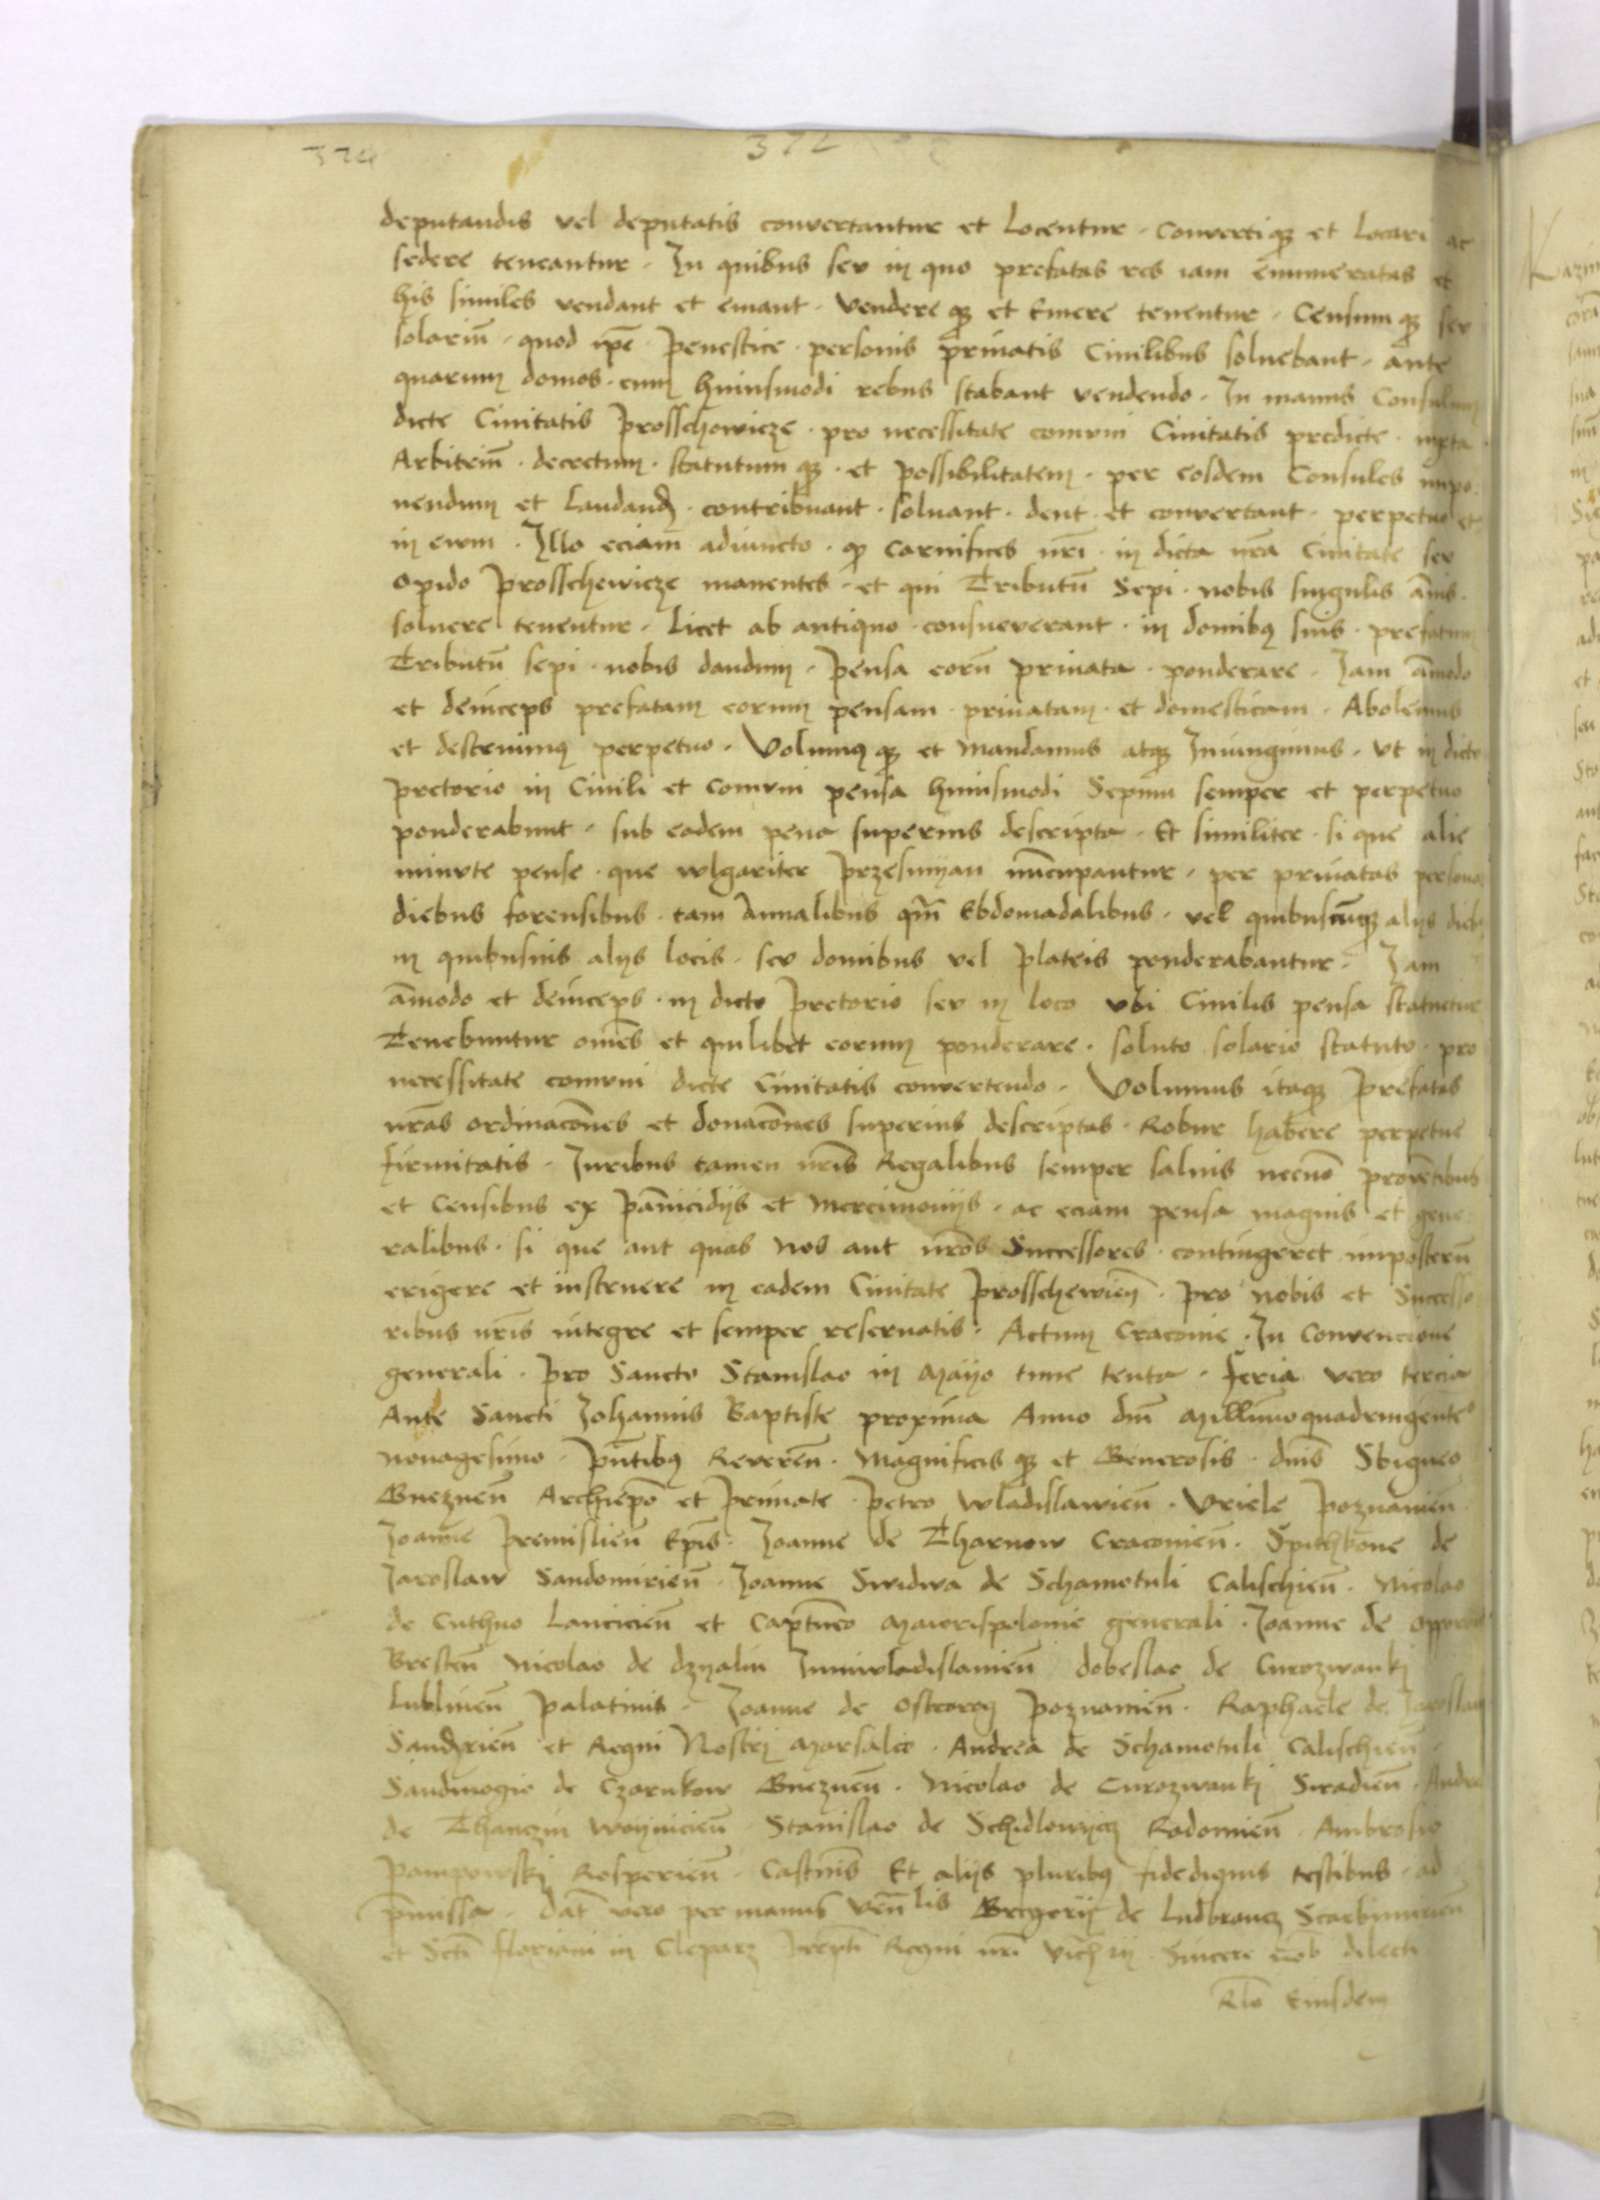 372
deputandis vel deputatis convertantur et Locentur · Convertiqꝫ et Locari ac
sedere teneantur · In quibus seu in quo prefatas res iam enumeratas et
his similes vendant et emant · Vendereqꝫ et Emere tenentur · Censumqꝫ seu
solariū · quod ip̄e · Penestice · personis privatis Civilibus solvebant · ante
quarum domos · cum huiusmodi rebus stabant vendendo · In manus Consulum
dicte Civitatis Prosschowicze · pro necessitate comuni Civitatis predicte · iuxta
Arbitriū · decretum · statutumqꝫ · et possibilitatem · per eosdem Consules impo
nendum et Laudanꝺ · contribuant · solvant · dent · et convertant · perpetuo et
in evm · Illo eciam adiuncto · qꝫ carnifices nr̄i · in dicta nr̄a Civitate seu
opido Prosschewicze manentes · et qui Tributū Sepi · nobis singulis Annis ·
solvere tenentur · Licet ab antiquo · consueverant · in domibꝰ suis · prefatum
Tributū sepi · nobis dandum · Pensa eorū privata · ponderare · Iam āmodo
et deinceps prefatam eorum pensam · privatam · et domesticam · Abolemus
et destruimꝰ perpetuo · Volumꝰqꝫ et Mandamus atqꝫ Iniungimus · Vt in dicto
pretorio in Civili et Comuni pensa huiusmodi Sepum semper et perpetuo
ponderabunt · sub eadem pena superius descripta · Et similiter · si que alie
minute pense · que wlgariter Przesmyan nūcupantur · per privatas personas
diebus forensibus · tam Annalibus qm̄ Ebdomadalibus · vel quibuscūqꝫ alijs dieb
in quibusuis alijs locis · seu domibus vel plateis ponderabantur · Iam
āmodo et deinceps · in dicto Pretorio seu in loco vbi Civilis pensa statuetur
Tenebuntur omēs et quilibet eorum ponderare · soluto solario statuto · pro
necessitate comuni dicte Civitatis convertendo · Volumus itaqꝫ Prefatas
nr̄as ordinacōnes et donacōnes superius descriptas · Robur habere perpetue
firmitatis · Iuribus tamen nr̄is Regalibus semper salvis necnō proventibus
et Censibus ex Pānicidijs et mercimonijs · ac eciam pensa magnis et gene
ralibus · si que aut quas Nos aut nr̄os Successores · contingeret imposterū
erigere et instruere in eadem Civitate Prosschewieñ · pro nobis et Successo
ribus nr̄is integre et semper reservatis · Actum Cracovie · In Convencione
generali · Pro Sancto Stanislao in Mayo tunc tenta · feria vero tercia
Ante Sancti Iohannis Baptiste proxima Anno dn̄i Millimoquadringentº
nonagesimo · pn̄tibꝰ Reverēn · Magnificisqꝫ et Generosis · dn̄is Sbigneo
Gneznēn Archiepō et Primate · Petro Wladislawiēn · Vriele Poznaniēn
Ioāne Premisliēn Ep̄is · Ioanne de Tharnow Cracoviēn · Spithkone de
Iaroslaw Sandomiriēn · Ioanne Swidwa de Schamotuli Calischiēn · Nicolao
de Cuthno Lanciciēn et Captn̄eo Maiorispolonie generali · Ioanne de
Brestēn Nicolao de dzyalin Iuniwladislaviēn dobeslao de Curozwankj
Lublinēn Palatinis · Ioanne de Ostrorog Poznaniēn · Raphaele de Iaroslaw
Sandriēn et Regni Nostri Marsalco · Andrea de Schamotuli Calischiēn
Sandivogio de Czarnkow Gneznēn · Nicolao de Curozwankj Siradiēn · Andrea
de Thanczin Woynicieñ · Stanislao de Schidlowycz Radomiēn · Ambrosio
Pampowskj Rosperiēn · Castn̄is Et alijs pluribꝰ fidedignis testibus · ad
p̄missa · dat̄ vero per manus Ven̄lis Gregorij de Ludbrancz Scarbimiriēn
et Scti floriani in Cleparz Prepti Regni nr̄i Vich̄ij · Sincere nob̄ dilecti
Rl̄o Eiusdem